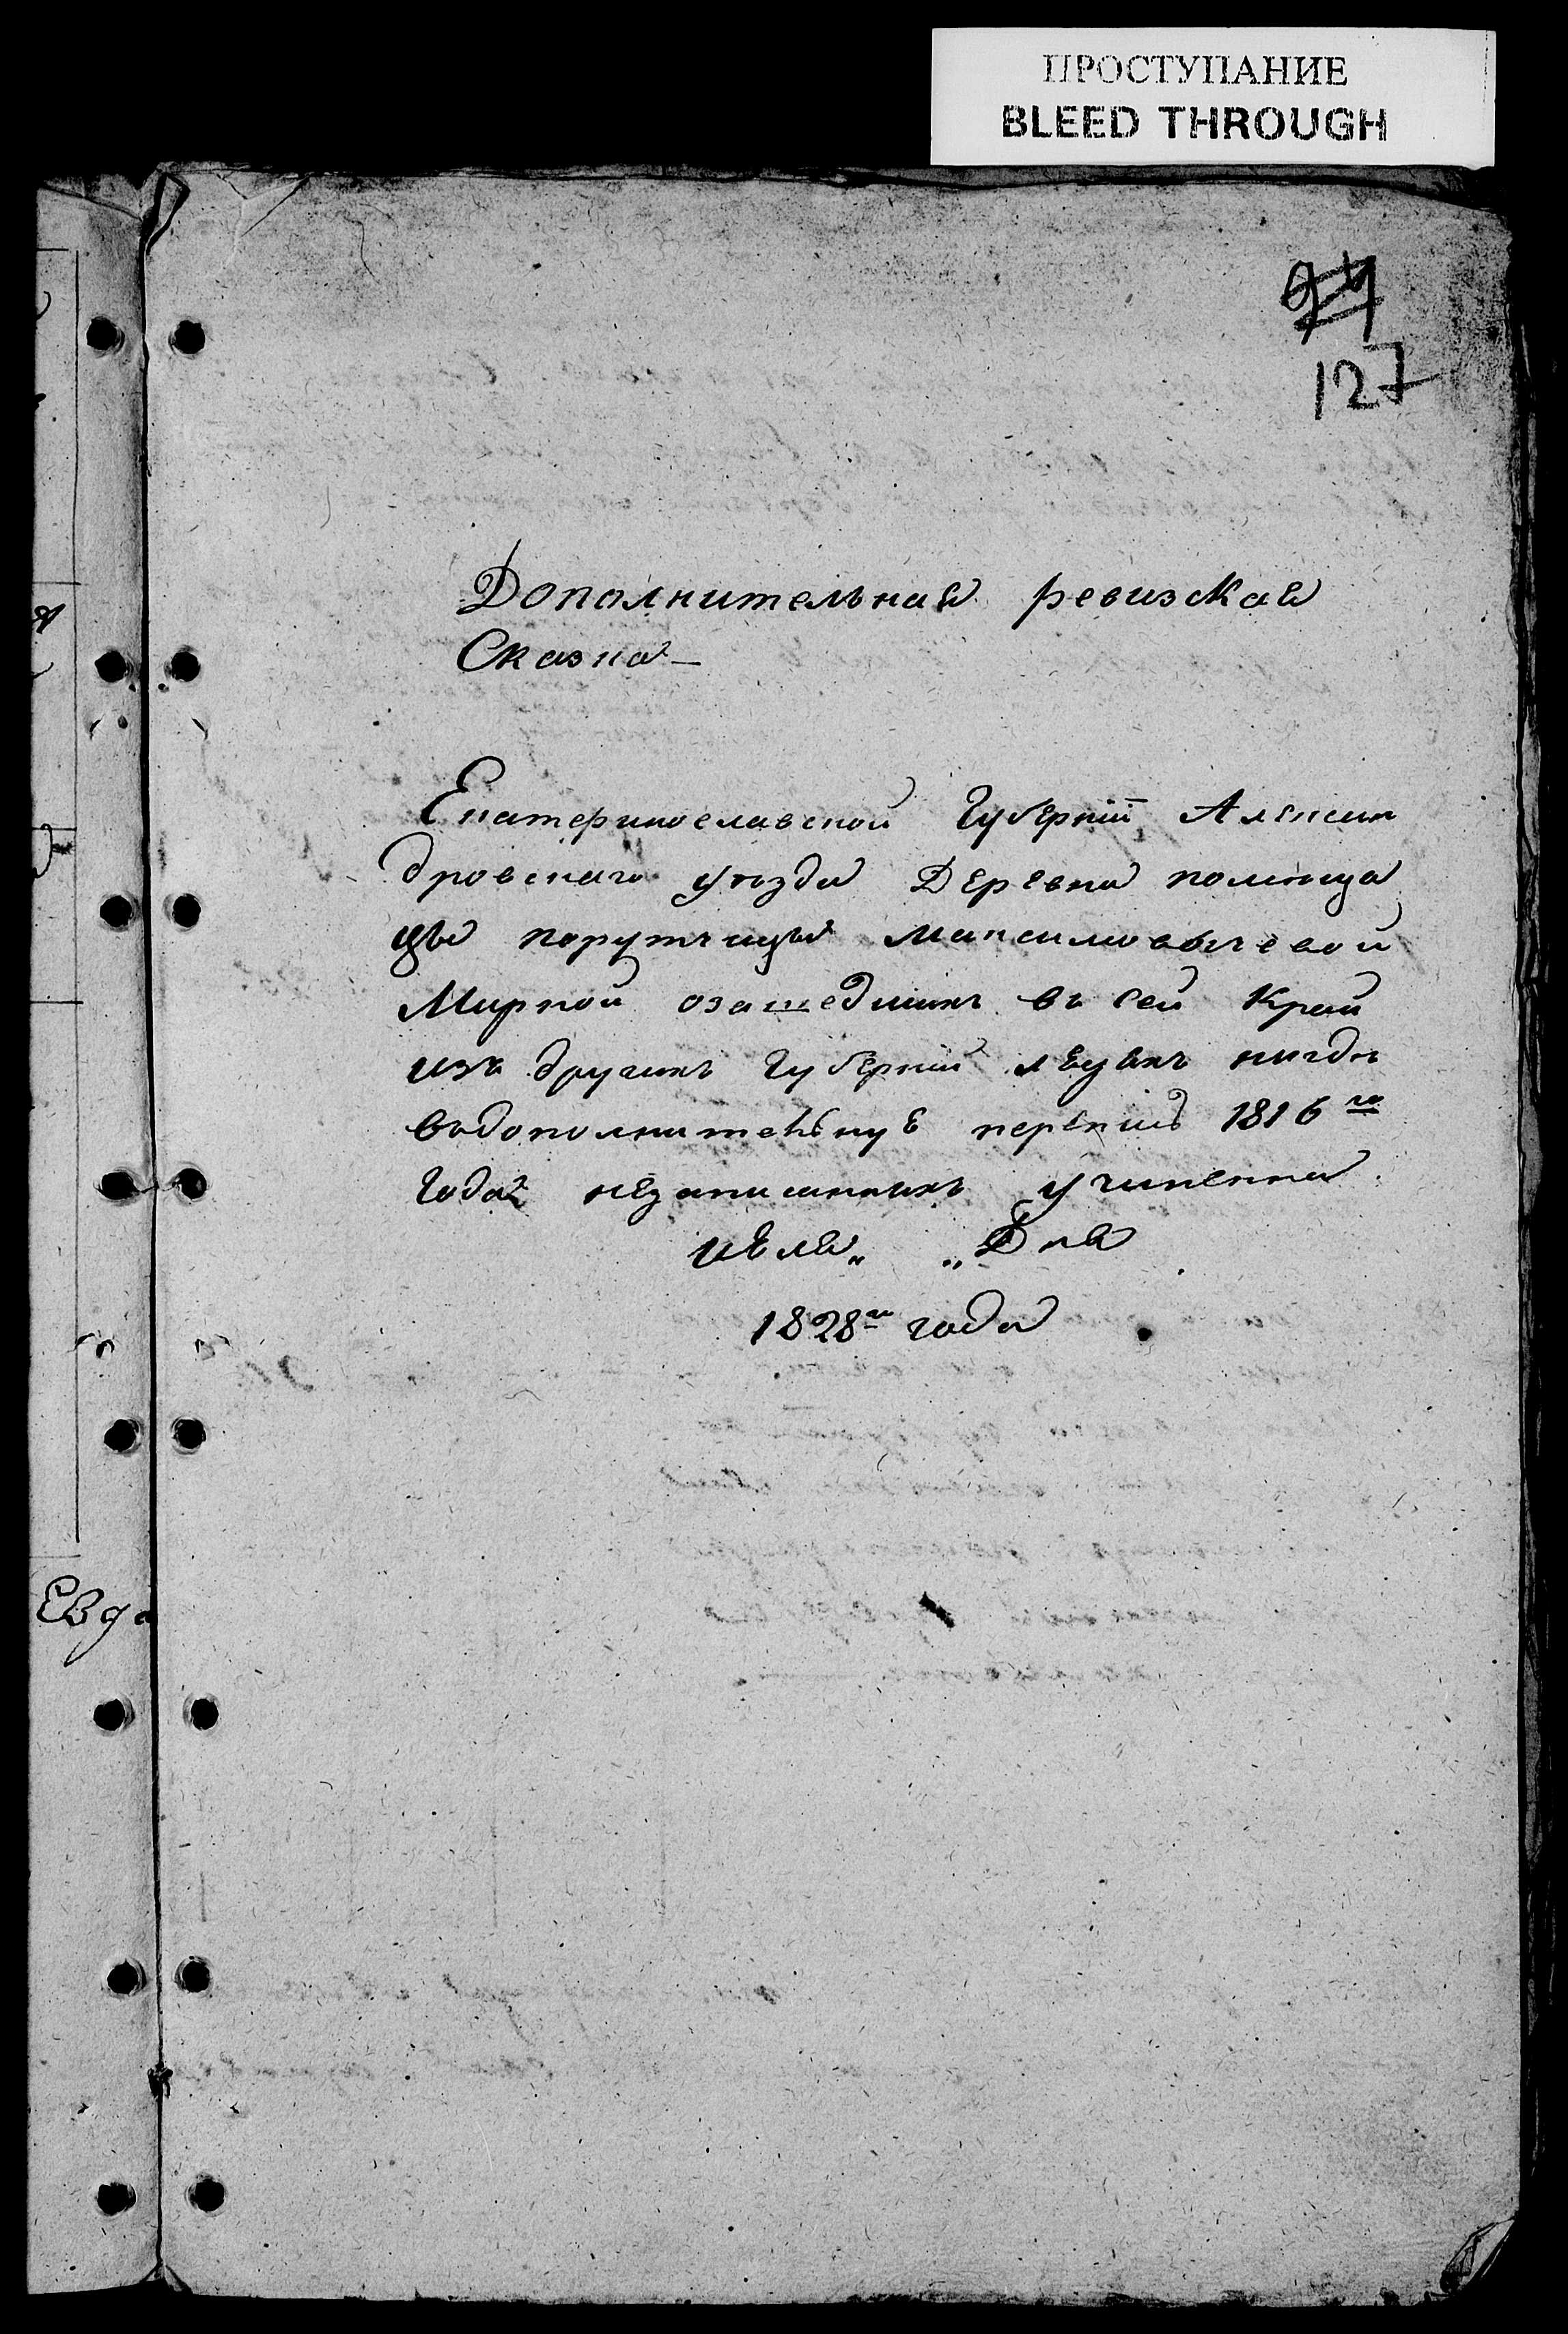 ПРОСТУПАНИЕ
BLEED THROUGH
127
Дополнительная ревизская
Сказка —
Екатеринославской Губернiи Алексан
дровскаго уѣзда Деревни помѣща
цы порутчицы Максимовичевой
Мирной озашедшихъ въ сей Край
изъ другихъ Губернiй нигдѣ
въдополнительную перепись 1816го
Года незаписанныхъ учиненна
июля „ „ Дня
1828го года
Евдо